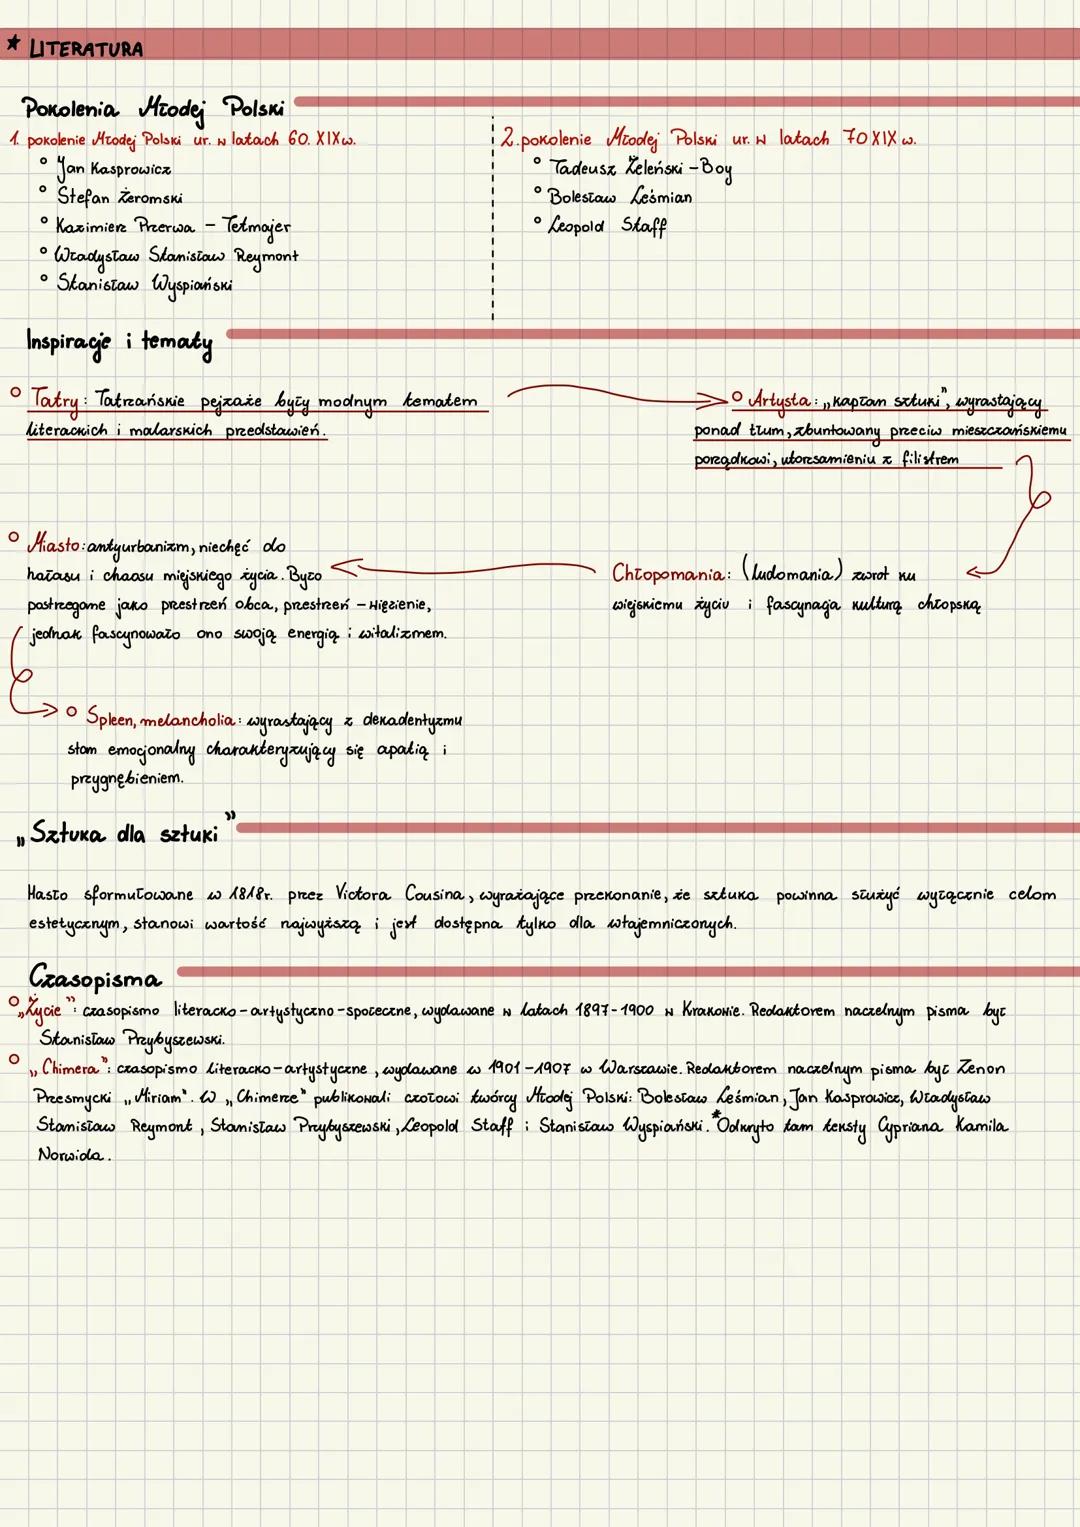 * LITERATURA
Pokolenia Młodej Polski
1. pokolenie Młodej Polski ur. w latach 60. XIX w.
° Jan Kasprowicz
° Stefan Żeromski
° Kazimierz Przerwa - Tetmajer
° Władysław Stanisław Reymont
° Stanisław Wyspiański
2. pokolenie Młodej Polski ur. w latach 70 XIX w.
° Tadeusz Żeleński - Boy
° Bolesław Leśmian
° Leopold Staff
Inspiracje i tematy
° Tatry: Tatrzańskie pejzaże były modnym tematem
literackich i malarskich przedstawień.
° Artysta: „kapłan sztuki”, wyrastający
ponad tłum, zbuntowany przeciw mieszczańskiemu
porządkowi, utorsamieniu z filistrem
Chłopomania: (ludomania) zwrot ku
wiejskiemu życiu i fascynacja kulturą chłopską
° Miasto: antyurbanizm, niechęć do
hałasu i chaosu miejskiego życia. Było
postrzegane jako przestrzeń obca, przestrzeń - więzienie,
jednak fascynowało ono swoją energią i witalizmem.
° Spleen, melancholia: wyrastający z dekadentyzmu
stan emocjonalny charakteryzujący się apatią i
przygnębieniem.
„Sztuka dla sztuki”
Hasło sformułowane w 1818r. przez Victora Cousina, wyrażające przekonanie, że sztuka powinna służyć wyłącznie celom
estetycznym, stanowi wartość najwyższą i jest dostępna tylko dla wtajemniczonych.
Czasopisma
° „Życie”: czasopismo literacko-artystyczno-społeczne, wydawane w latach 1897-1900 w Krakowie. Redaktorem naczelnym pisma był
Stanisław Przybyszewski.
° „Chimera”: czasopismo literacko-artystyczne, wydawane w 1901-1907 w Warszawie. Redaktorem naczelnym pisma był Zenon
Przesmycki „Miriam”. W „Chimerze” publikowali czołowi twórcy Młodej Polski: Bolesław Leśmian, Jan Kasprowicz, Władysław
Stanisław Reymont, Stanisław Przybyszewski, Leopold Staff i Stanisław Wyspiański. *Odkryto tam teksty Cypriana Kamila
Norwida.